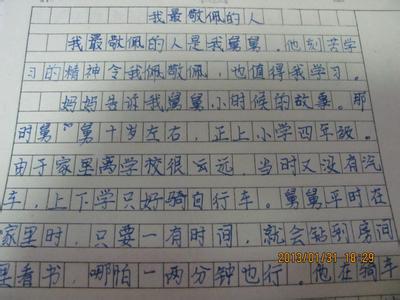 我最敬佩的人
我最敬佩的人是我舅舅。他刻苦学
习的精神令我佩敬佩，也值得我学习。
妈妈告诉我舅舅小时候的故事。那
时舅〃第十岁左右，正上小学四年级。
由于家里离学校很云远，当时又没有汽
车，上下学只好骑自行车。舅舅平时在
家里时，只要一有时间，就会钻到房间
里看书，哪怕一两分钟也行。他在骑车
2013/01/31 18:29